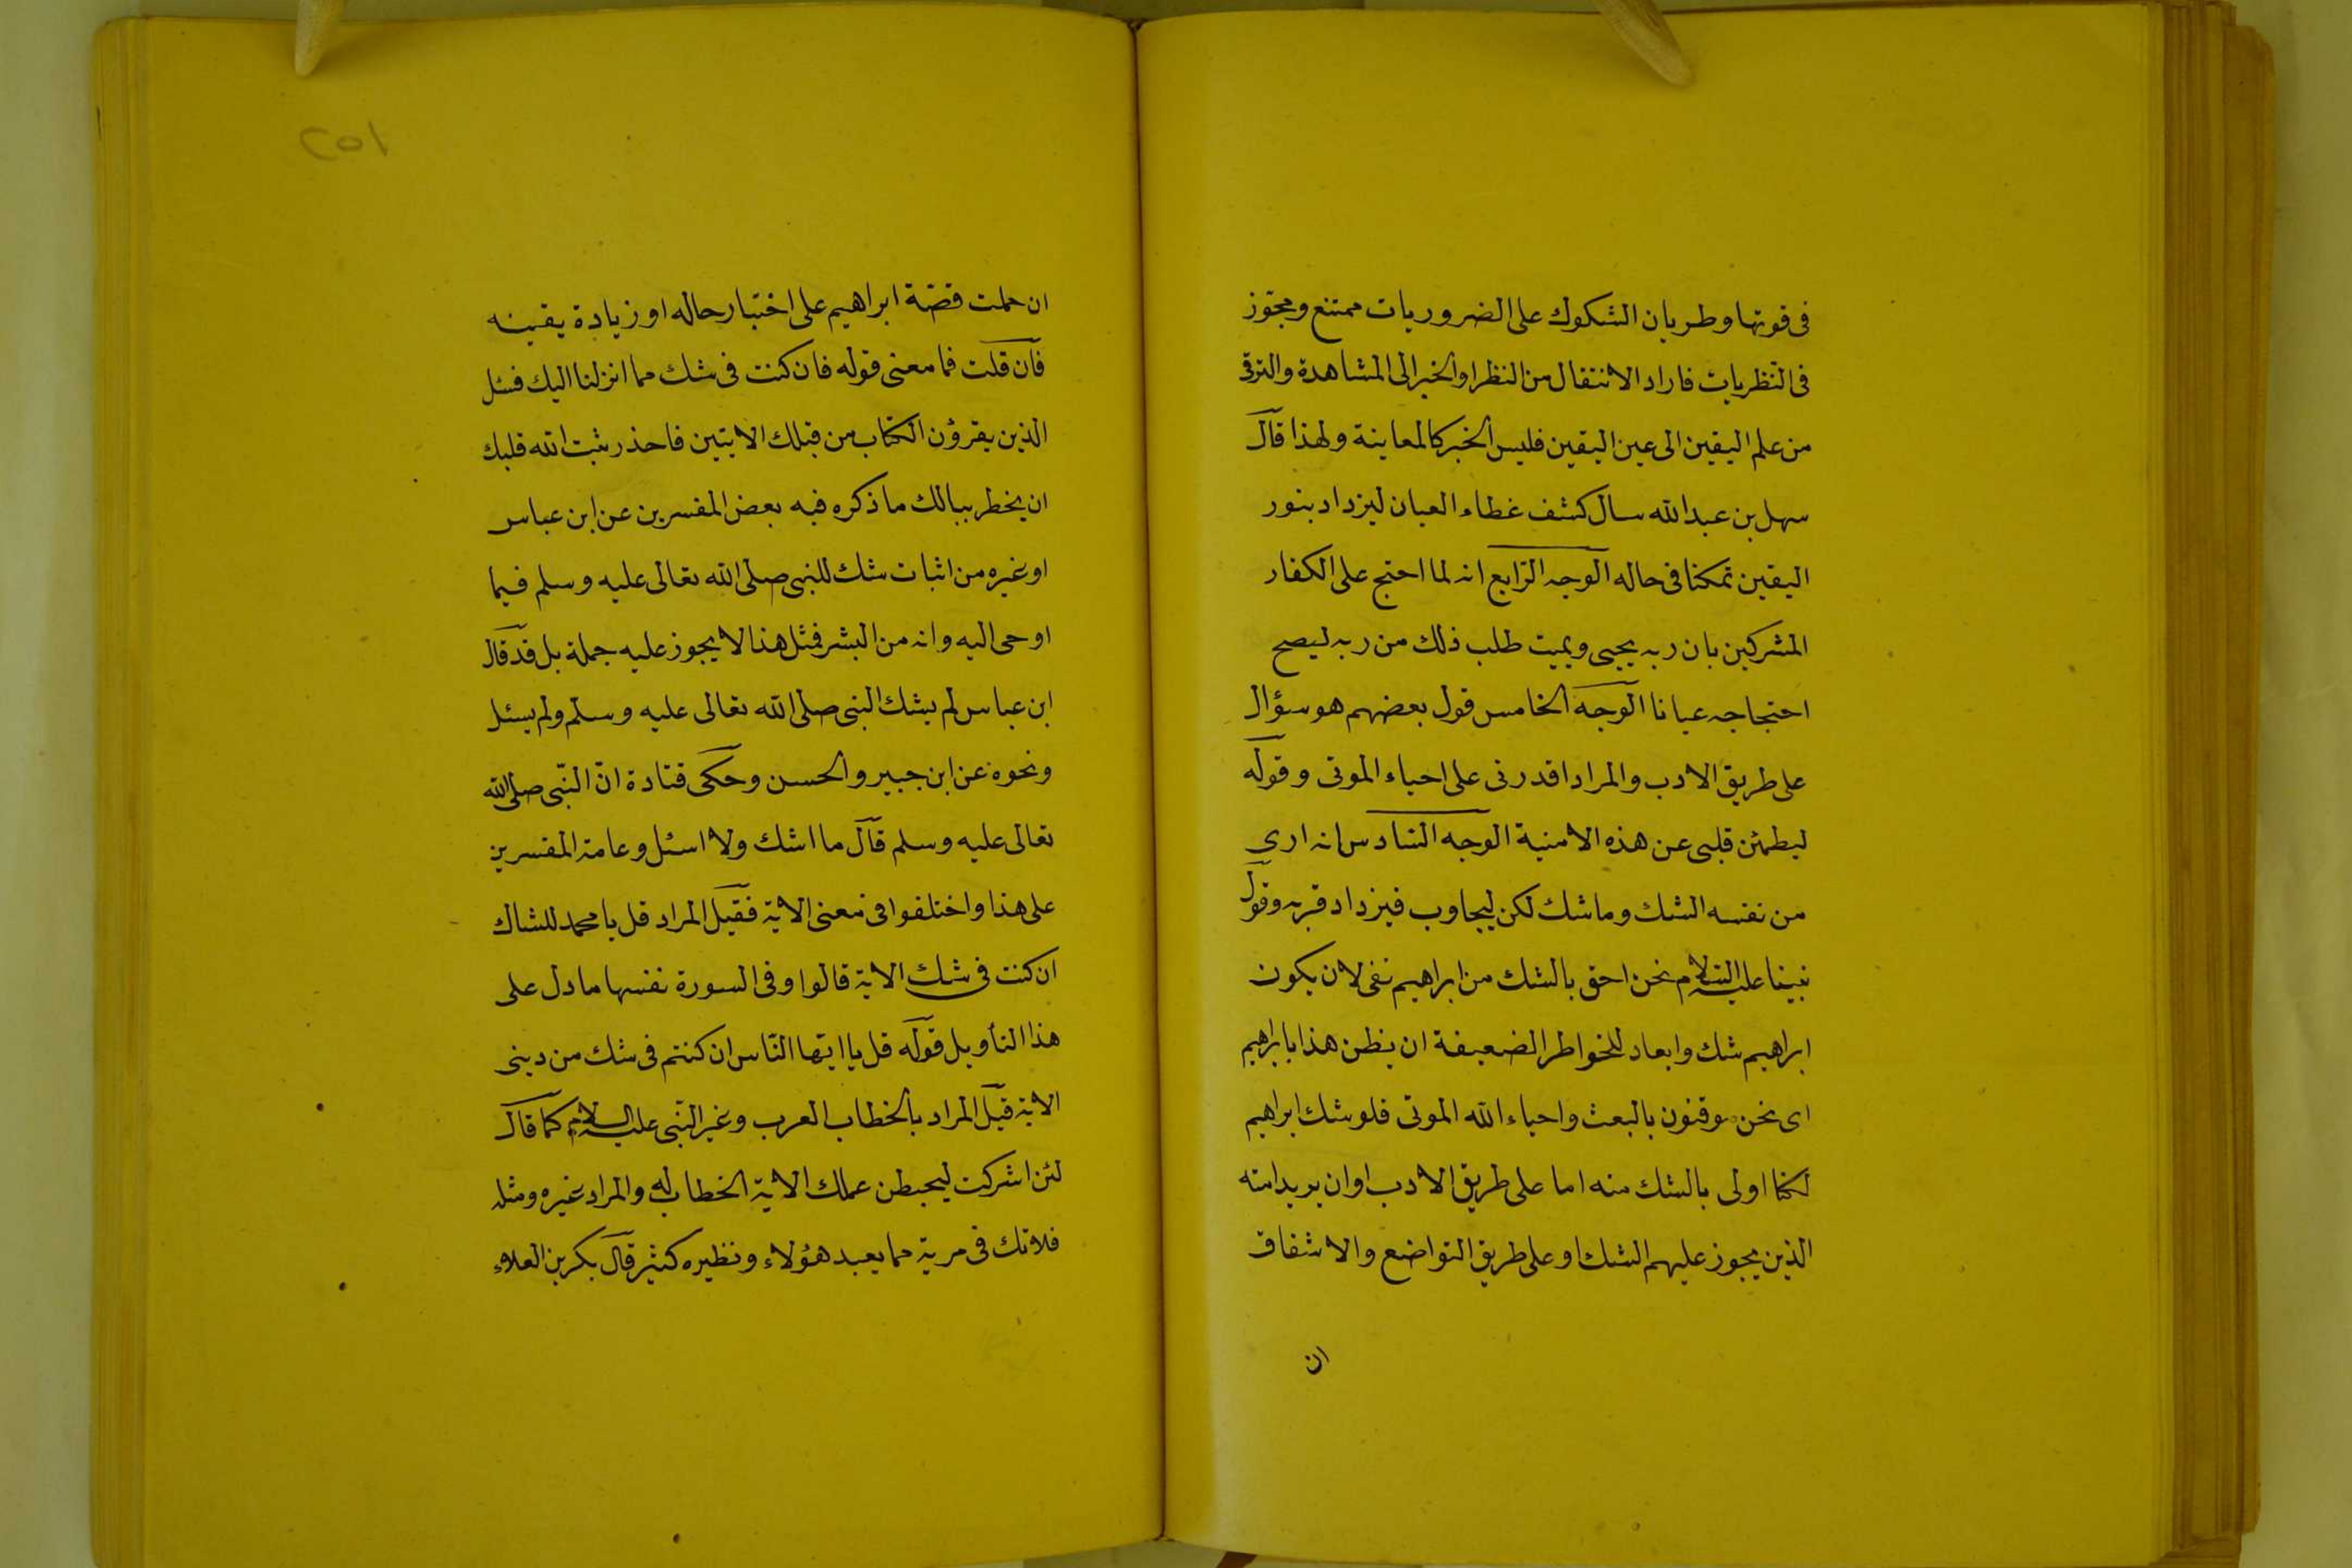 فى قوتها وطريان الشكوك على الضروريات ممتنع ومجوّز
فى النّظريات فاراد الانتقال من النظر او الخبر الى المشاهدة والترقى
من علم اليقين الى عين اليقين فليس الخبر كالمعاينة ولهذا قال
سهل بن عبد الله سال كشف غطاء العيان ليزداد بنور
اليقين تمكنا فى حاله الوجه الرّابع انه لما احتج على الكفار
المشركين بان ربه يحيى ويميت طلب ذلك من ربه ليصح
احتجاجه عيانا الوجه الخامس قول بعضهم هو سؤال
على طريق الادب والمراد اقدرنى على احياء الموتى وقوله
ليطمئن قلبى عن هذه الامنية الوجه السّادس انه ارى
من نفسه الشك وما شك لكن ليجاوب فيزداد قربه وقول
نبينا عليه السلام نحن احق بالشك من ابراهيم نفى لان يكون
ابراهيم شك وابعاد للخواطر الضعيفة ان يظن هذا بابرهيم
اى نحن موقنون بالبعث واحياء الله الموتى فلو شك ابراهيم
لكنا اولى بالشك منه اما على طريق الادب او ان يريد امته
الذين يجوز عليهم الشك او على طريق التواضع والاشفاق
ان
٢٥١
ان حملت قصّة ابراهيم على اختبار حاله او زيادة يقينه
فان قلت فما معنى قوله فان كنت فى شك مما انزلنا اليك فسئل
الذين يقرؤن الكتاب من قبلك الايتين فاحذر ثبت الله قلبك
ان يخطر ببالك ما ذكره فيه بعض المفسرين عن ابن عباس
او غيره من اثبات شك للنبى صلى الله تعالى عليه وسلم فيما
اوحى اليه وانه من البشر فمثل هذا لا يجوز عليه جملة بل قد قال
ابن عباس لم يشك النبى صلى الله تعالى عليه وسلم ولم يسئل
ونحوه عن ابن جبير والحسن وحكى قتادة انّ النّبى صلى الله
تعالى عليه وسلم قال ما اشك ولا اسئل وعامة المفسرين
على هذا واختلفوا فى معنى الاية فقيل المراد قل يا محمد للشاك
ان كنت فى شك الاية قالوا وفى السورة نفسها ما دل على
هذا التأويل قوله قل يا ايّها النّاس ان كنتم فى شك من دينى
الاية قيل المراد بالخطاب العرب وغير النّبى عليه السلام كما قال
لئن اشركت ليحبطن عملك الاية الخطاب له والمراد غيره ومثله
فلا تك فى مرية مما يعبد هؤلاء ونظيره كثير قال بكر بن العلاء